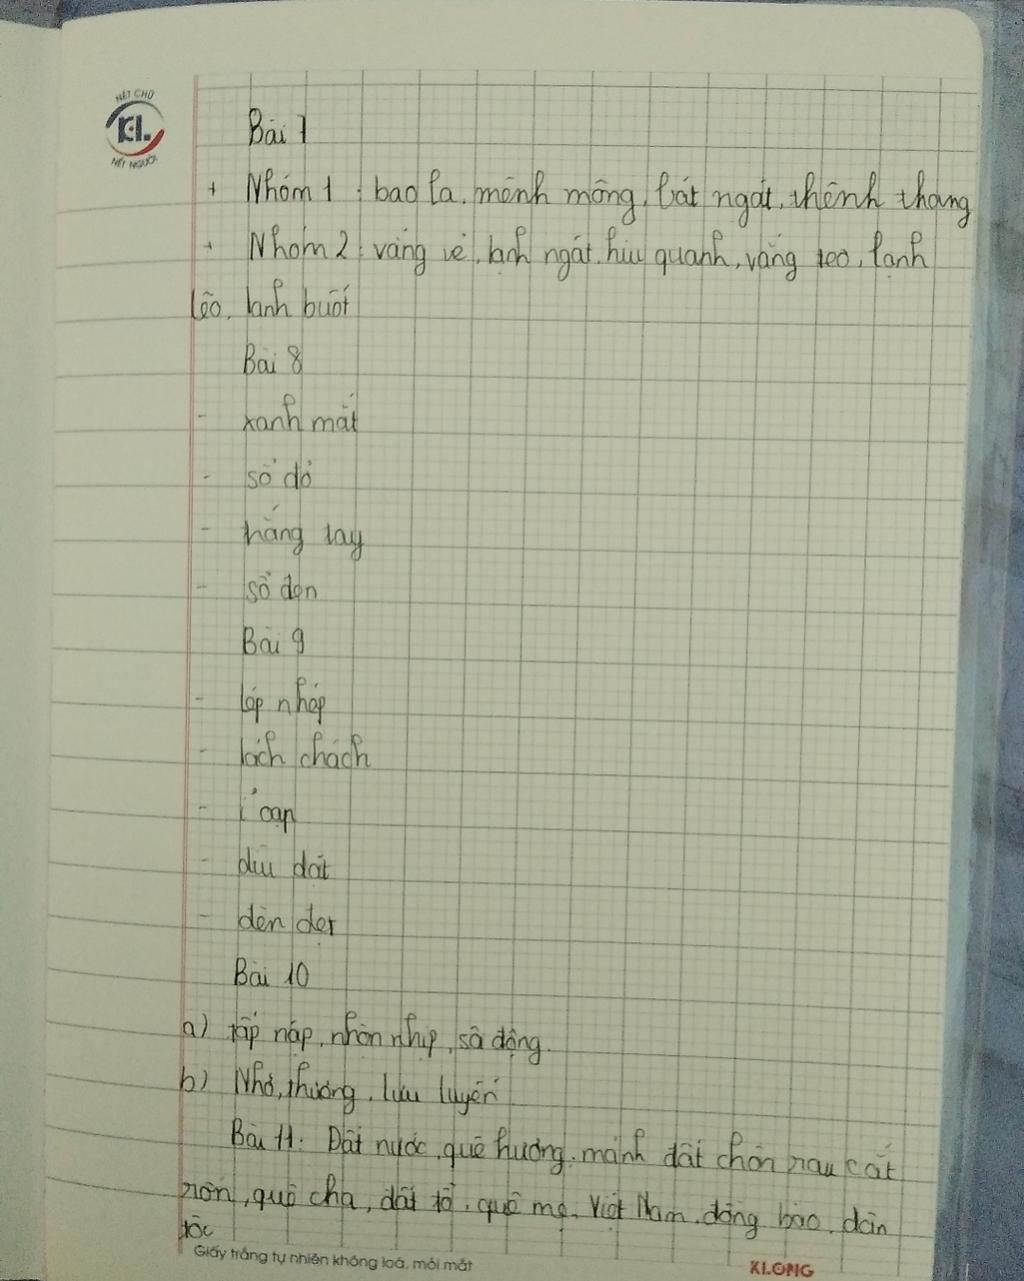 NÉT CHỮ
KL.
NẾT NGƯỜI
Bài 1
+ Nhóm 1 : bao la, mênh mông, bát ngát, thênh thang
+ Nhóm 2 : vắng vẻ, lạnh ngắt, hiu quạnh, vắng teo, lạnh
lẽo, lạnh buốt
Bài 8
- xanh mắt
- sổ đỏ
- trắng tay
- sổ đen
Bài 9
- lóp nhóp
- lách chách
- ì oạp
- dìu dặt
- đèn đẹt
Bài 10
a) tấp nập, nhộn nhịp, sôi động.
b) Nhớ, thương, lưu luyến
Bài 11: Đất nước, quê hương, mảnh đất chôn rau cắt
rốn, quê cha, đất tổ, quê mẹ, Việt Nam, đồng bào, dân
tộc
Giấy trắng tự nhiên không loá, mỏi mắt
KLONG